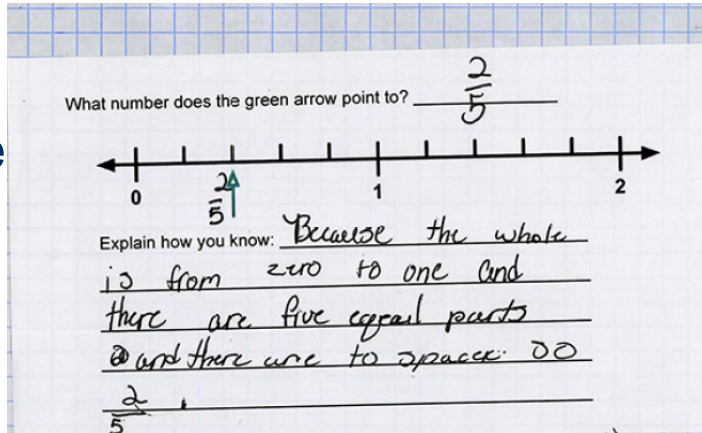 2/5
What number does the green arrow point to?
0 1 2
2/5
Explain how you know: Because the whole
is from zero to one and
there are five eqeail parts
and there are to spacec. so
2/5.